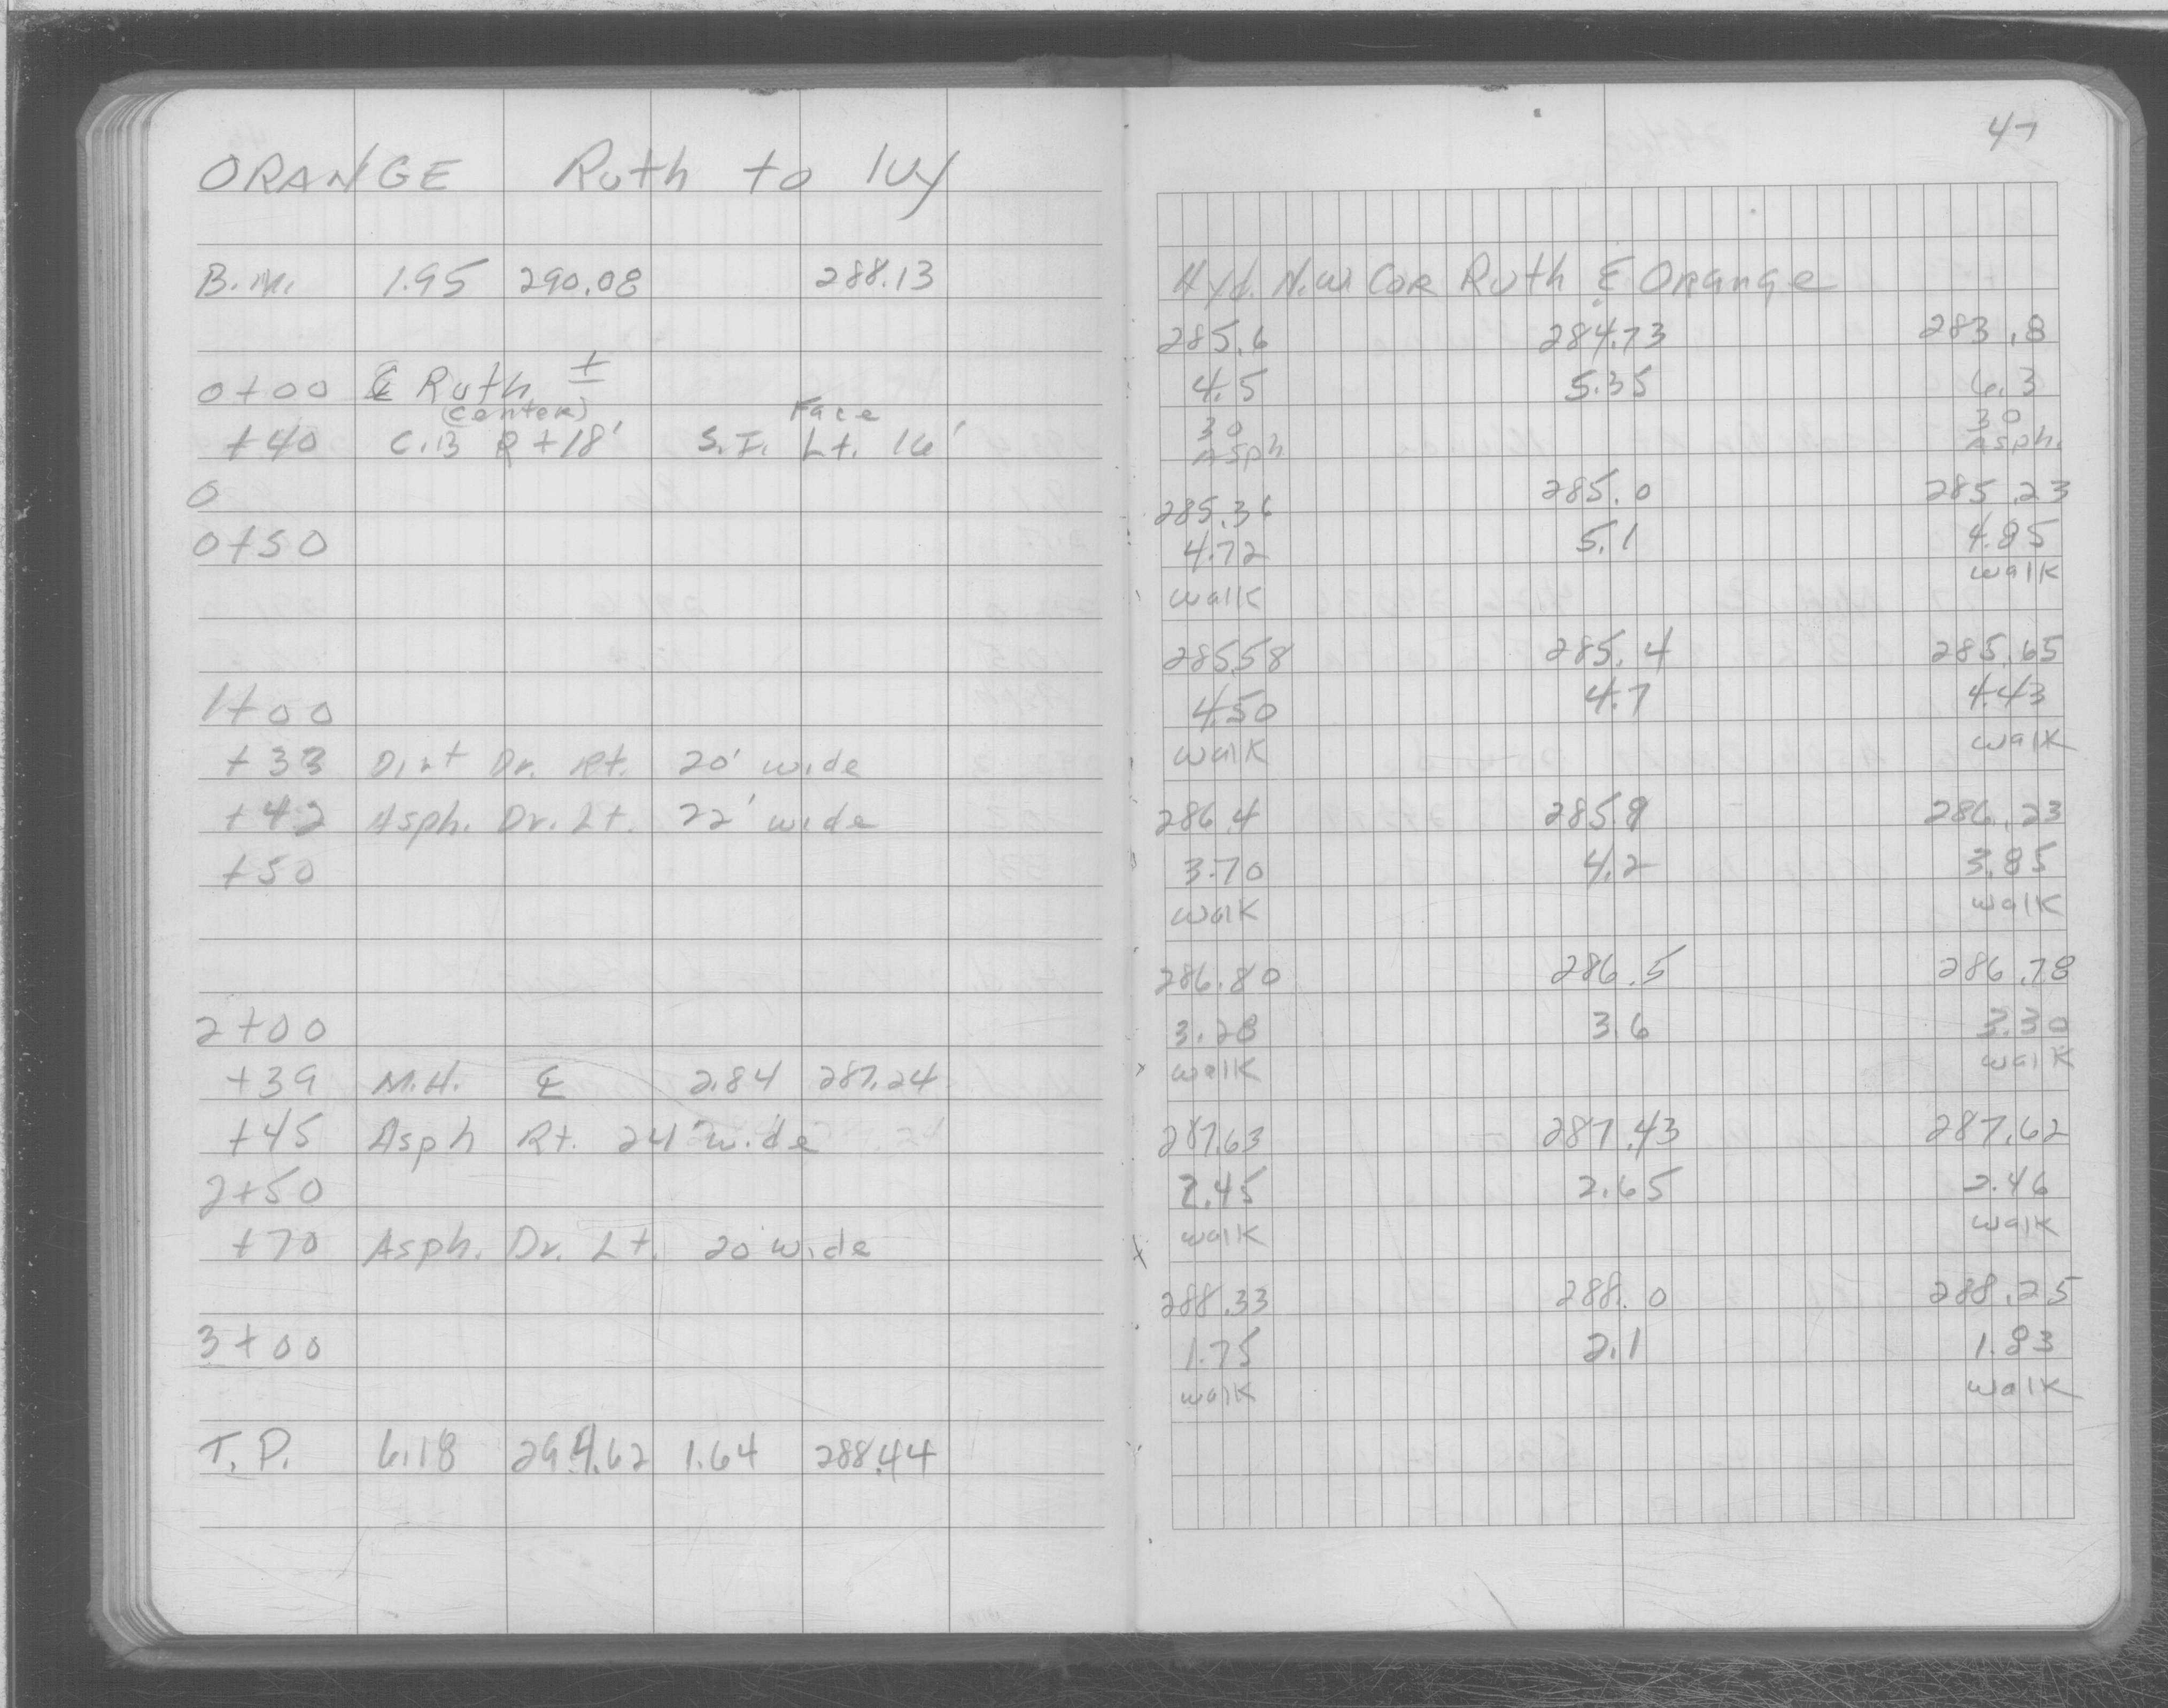 47
ORANGE Ruth to Ivy
B.M. 1.95 290.08 288.13
0+00 ℄ Ruth ±
(center) Face
+40 C.B Rt 18' S.I. Lt. 16'
0
0+50
1+00
+33 Dirt Dr. Rt. 20' wide
+42 Asph. Dr. Lt. 22' wide
+50
2+00
+39 M.H. ℄ 2.84 287.24
+45 Asph Rt. 24' wide
2+50
+70 Asph. Dr. Lt. 20' wide
3+00
T.P. 6.18 294.62 1.64 288.44
Hyd. N.W Cor Ruth & Orange
285.6 284.73 283.8
4.5 5.35 6.3
30 30
Asph Asph.
285.36 285.0 285.23
4.72 5.1 4.85
walk walk
285.58 285.4 285.65
4.50 4.7 4.43
walk walk
286.4 285.9 286.23
3.70 4.2 3.85
walk walk
286.80 286.5 286.78
3.28 3.6 3.30
walk walk
287.63 287.43 287.62
2.45 2.65 2.46
walk walk
288.33 288.0 288.25
1.75 2.1 1.83
walk walk